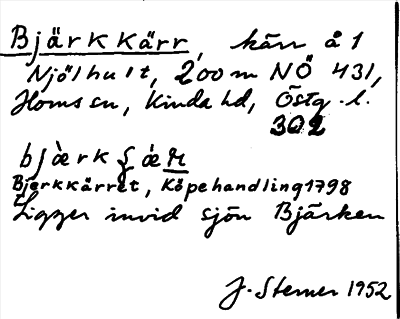 Bjärkkärr, kärr å 1
Njölhult, 200 m NÖ 431,
Horns sn, Kinda hd, Östg. l.
302
Bjerkkärret, Köpehandling 1798
Ligger invid sjön Bjärken
J. Sterner 1952